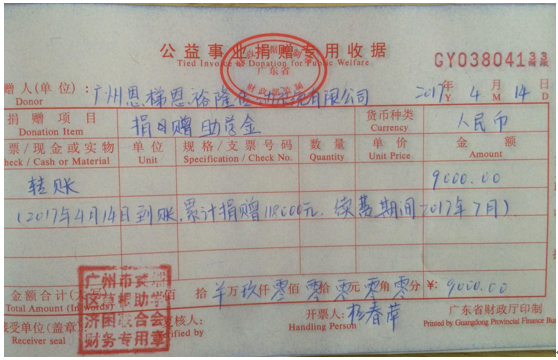 公益事业捐赠专用收据
Tied Invoice of Donation for Public Welfare
GY0380413
广东省
财政部监制
赠人(单位): 广州恩梯恩裕隆传动系统有限公司 2017年 4月 14日
Donor Y M D
捐赠项目 捐赠助学金 货币种类 人民币
Donation Item Currency
票/现金或实物 单位 规格/支票号码 数量 单价 金额
heck / Cash or Material Unit Specification / Check No. Quantity Unit Price Amount
转账 9000.00
(2017年4月14日到账,累计捐赠118000元. 续签期间2017年7月)
金额合计 佰 拾 万 玖仟 零佰 零拾 零元 零角 零分 ¥: 9000.00
Total Amount (In words)
受单位(盖章) 复核人: 开票人: 杨春萍 广东省财政厅印制
Receiver seal Verified by Handling Person Printed by Guangdong Provincial Finance Bu
广州市
助学
济困联合会
财务专用章